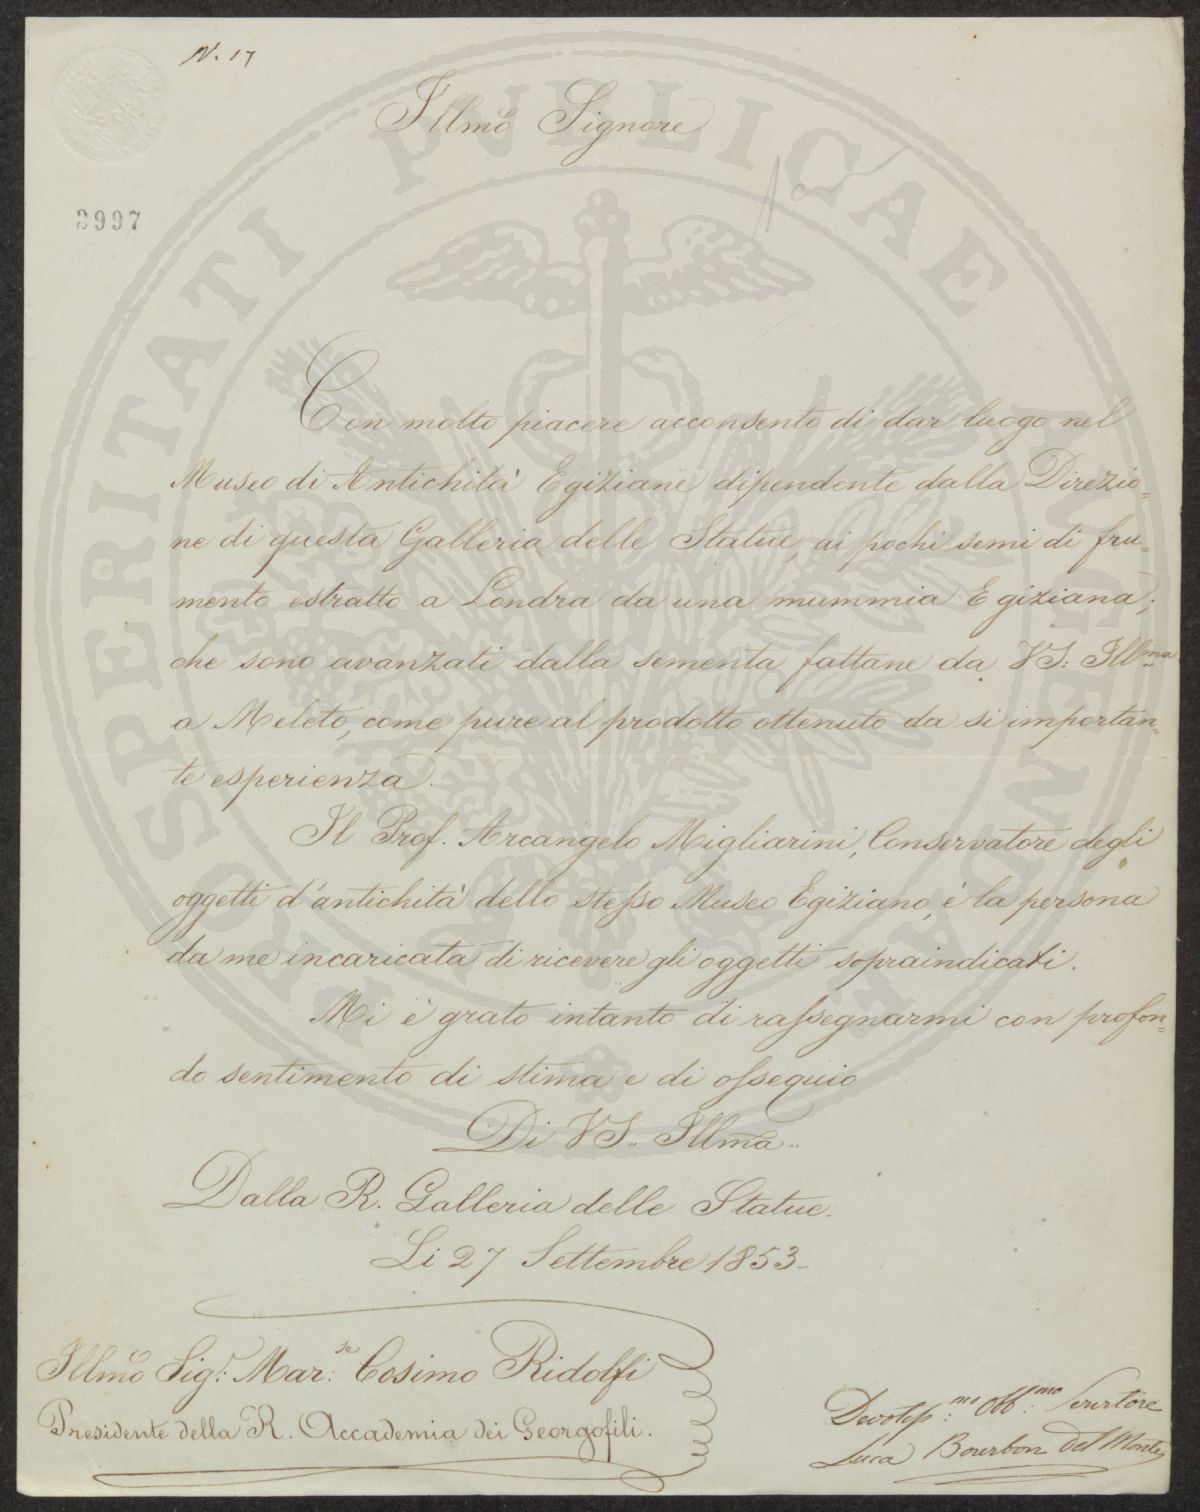 N. 17
Illmo Signore
2997
Con molto piacere acconsento di dar luogo nel
Museo di Antichità Egiziane dipendente dalla Direzio=
ne di questa Galleria delle Statue, ai pochi semi di fru=
mento estratto a Londra da una mummia Egiziana;
che sono avanzati dalla sementa fattane da VS: Illma
a Meleto, come pure al prodotto ottenuto da sì importan=
te esperienza.
Il Prof. Arcangelo Migliarini, Conservatore degli
oggetti d'antichità dello stesso Museo Egiziano, è la persona
da me incaricata di ricevere gli oggetti sopraindicati.
Mi è grato intanto di rassegnarmi con profon=
do sentimento di stima e di ossequio
Di VS.. Illma..
Dalla R. Galleria delle Statue.
Li 27 Settembre 1853.
Illmo Sig.r Mar.se Cosimo Ridolfi
Presidente della R. Accademia dei Georgofili.
Devotiss.mo Obb.mo Servitore
Luca Bourbon Del Monte
PROSPERITATI PUBLICAE AUGENDAE